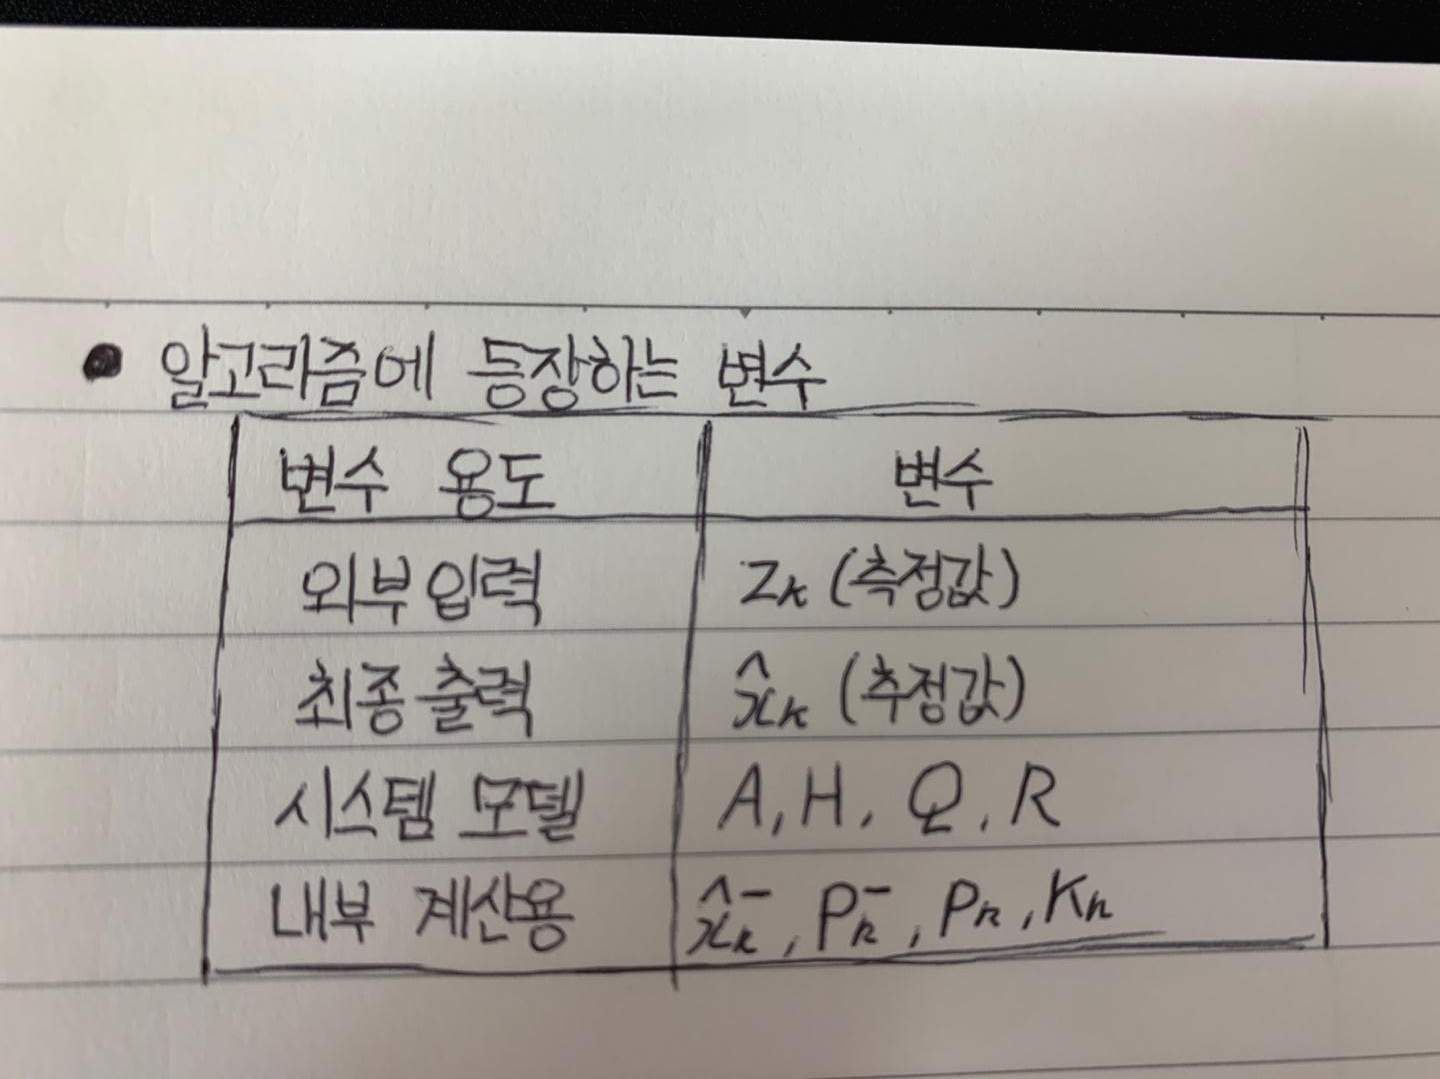 ● 알고리즘에 등장하는 변수
변수 용도 변수
외부입력 zₖ (측정값)
최종출력 x̂ₖ (추정값)
시스템 모델 A, H, Q, R
내부 계산용 x̂ₖ⁻, Pₖ⁻, Pₖ, Kₖ